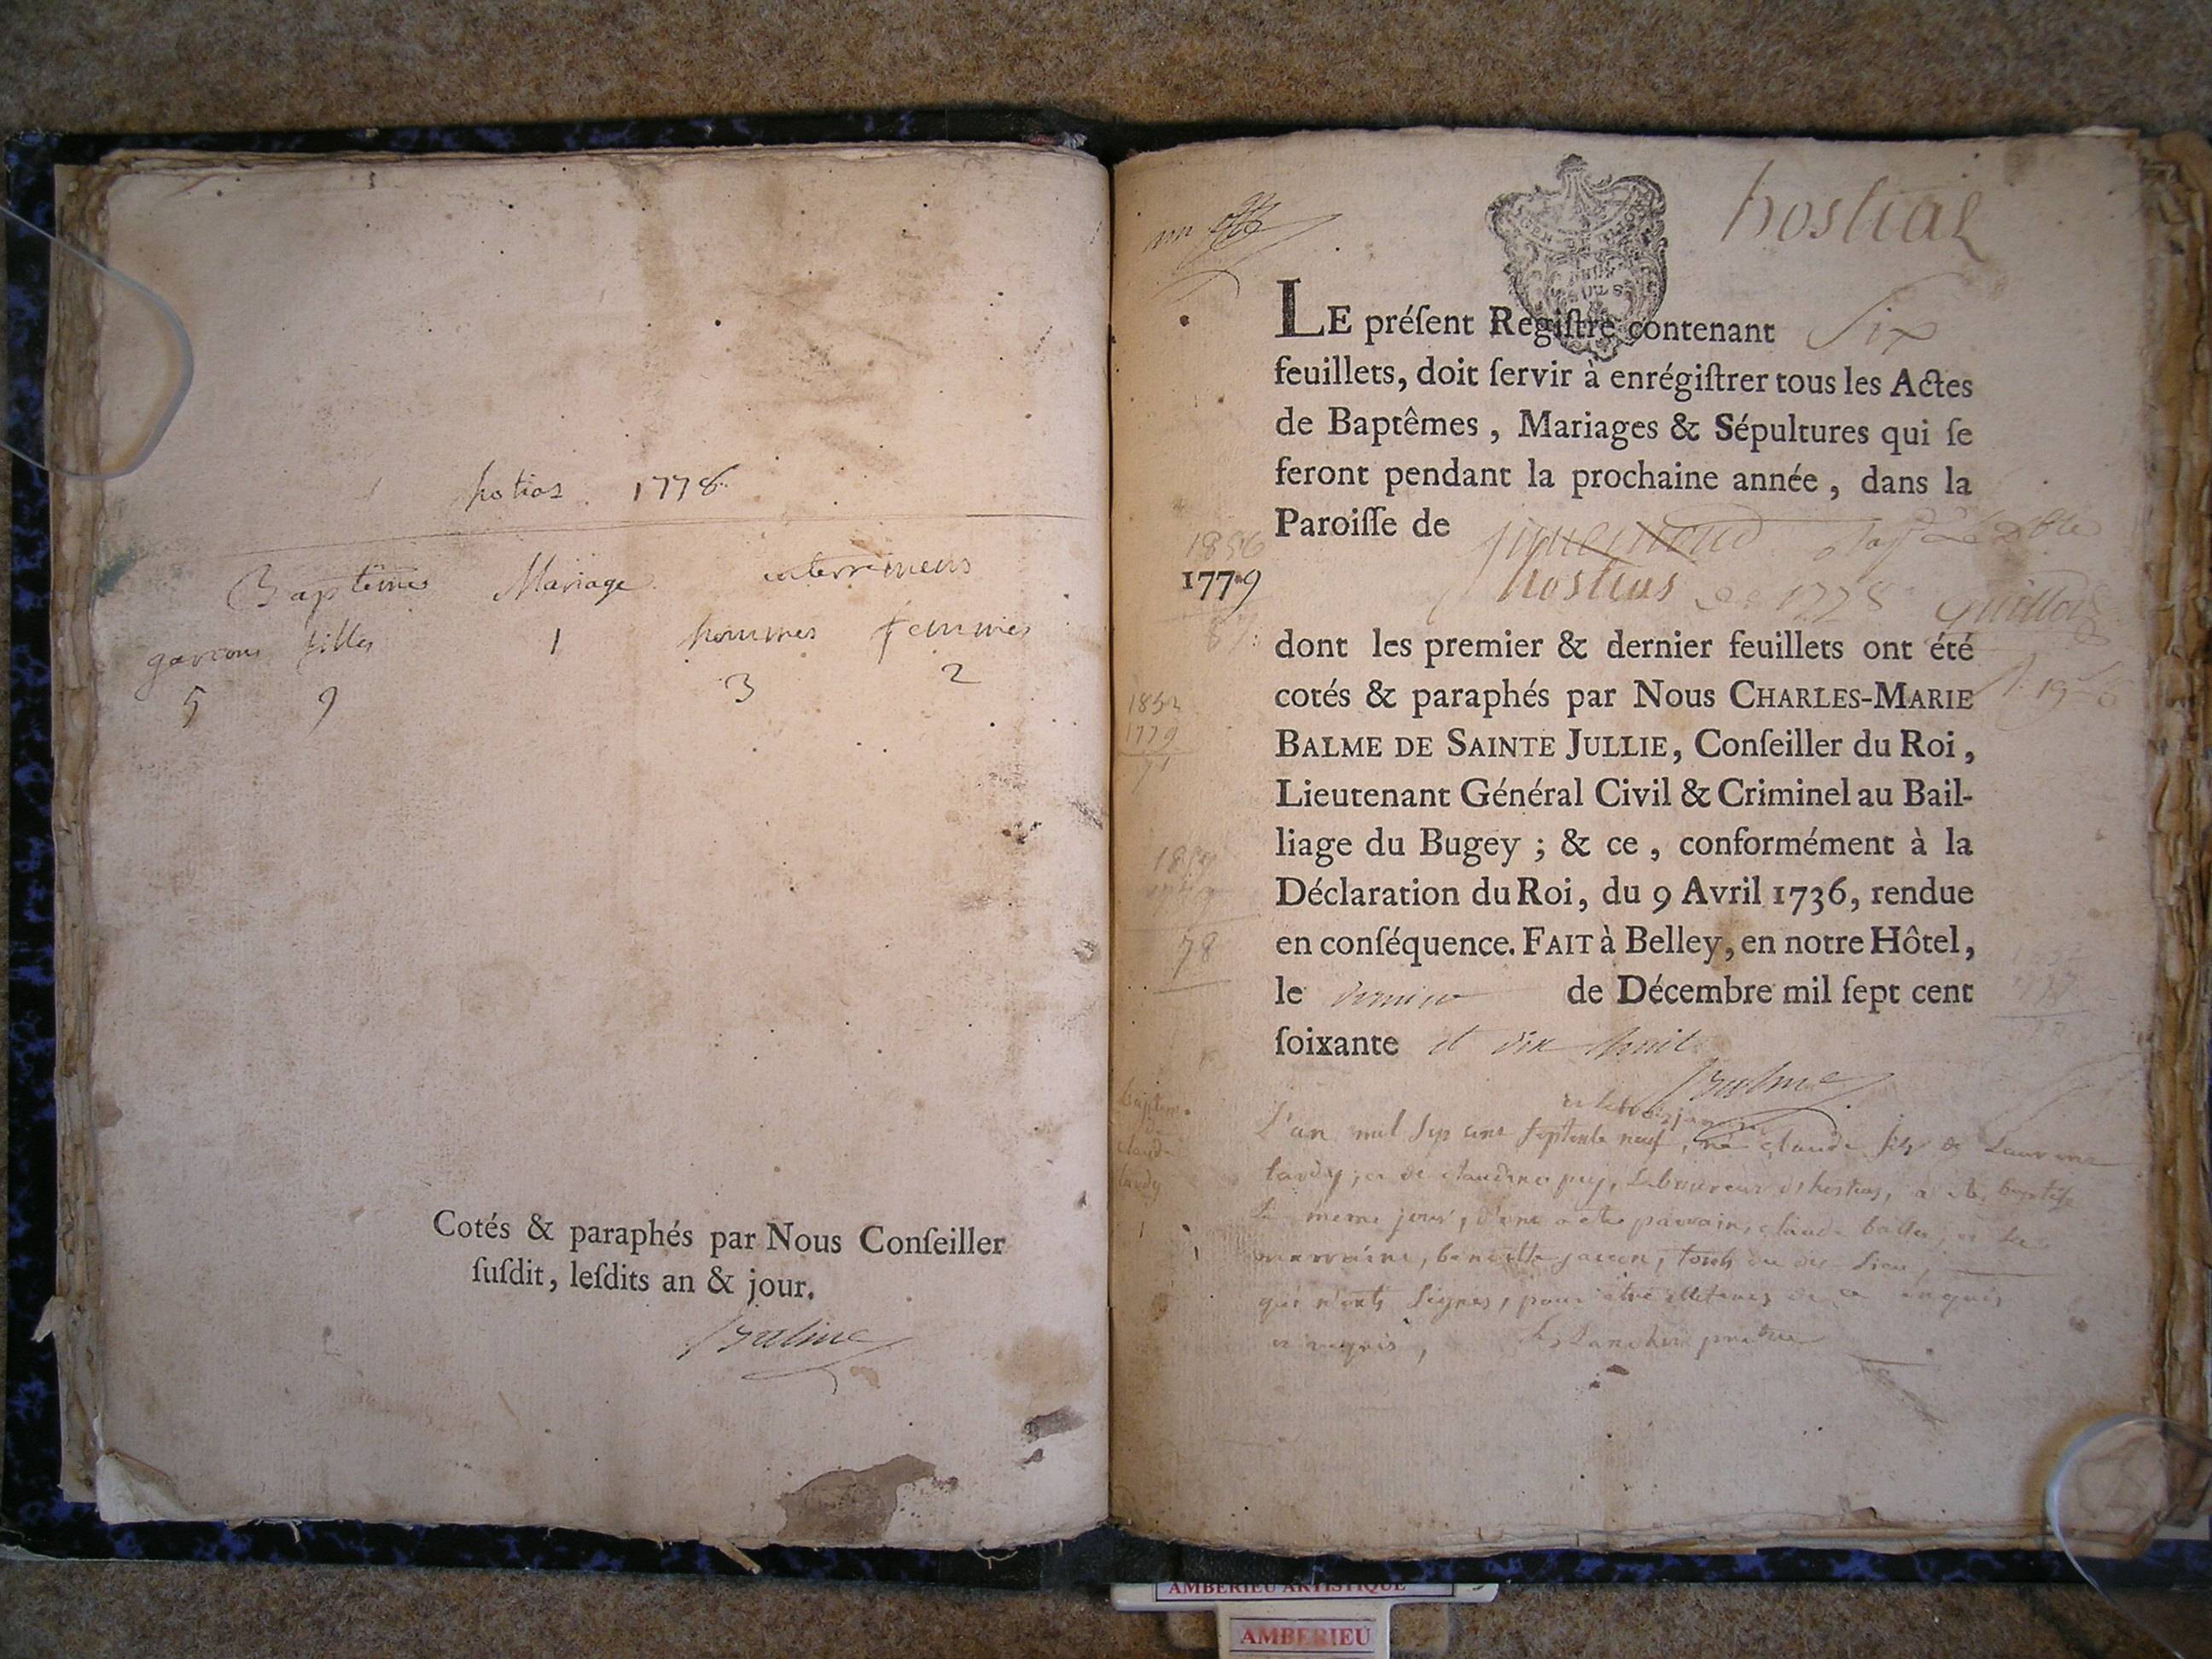 hotias 1778
Baptêmes Mariage enterrements
garcons filles 1 hommes femmes
5 9 3 2
Cotés & paraphés par Nous Conſeiller
ſuſdit, leſdits an & jour.
Balme
hostiaz
LE préſent Regiſtre contenant Six
feuillets, doit ſervir à enrégiſtrer tous les Actes
de Baptêmes, Mariages & Sépultures qui ſe
feront pendant la prochaine année, dans la
Paroiſſe de
1856
1779 hostias
dont les premier & dernier feuillets ont été
cotés & paraphés par Nous CHARLES-MARIE
BALME DE SAINTE JULLIE, Conſeiller du Roi,
Lieutenant Général Civil & Criminel au Bail-
liage du Bugey ; & ce, conformément à la
Déclaration du Roi, du 9 Avril 1736, rendue
en conſéquence. FAIT à Belley, en notre Hôtel,
le dernier de Décembre mil ſept cent
ſoixante et dix huit
Balme
1779
78
L'an mil sep cent septente neuf, né claude fils de Laurent
tardy, et de claudine puy, Laboureur d'hostias, a été baptisé
le meme jour, dont a été parrain, claude et la
marraine, benoitte tous du dit Lieu,
qui n'ont signes, pour être illeteres de ce enquis
et requis,
AMBERIEU ARTISTIQUE
AMBERIEU